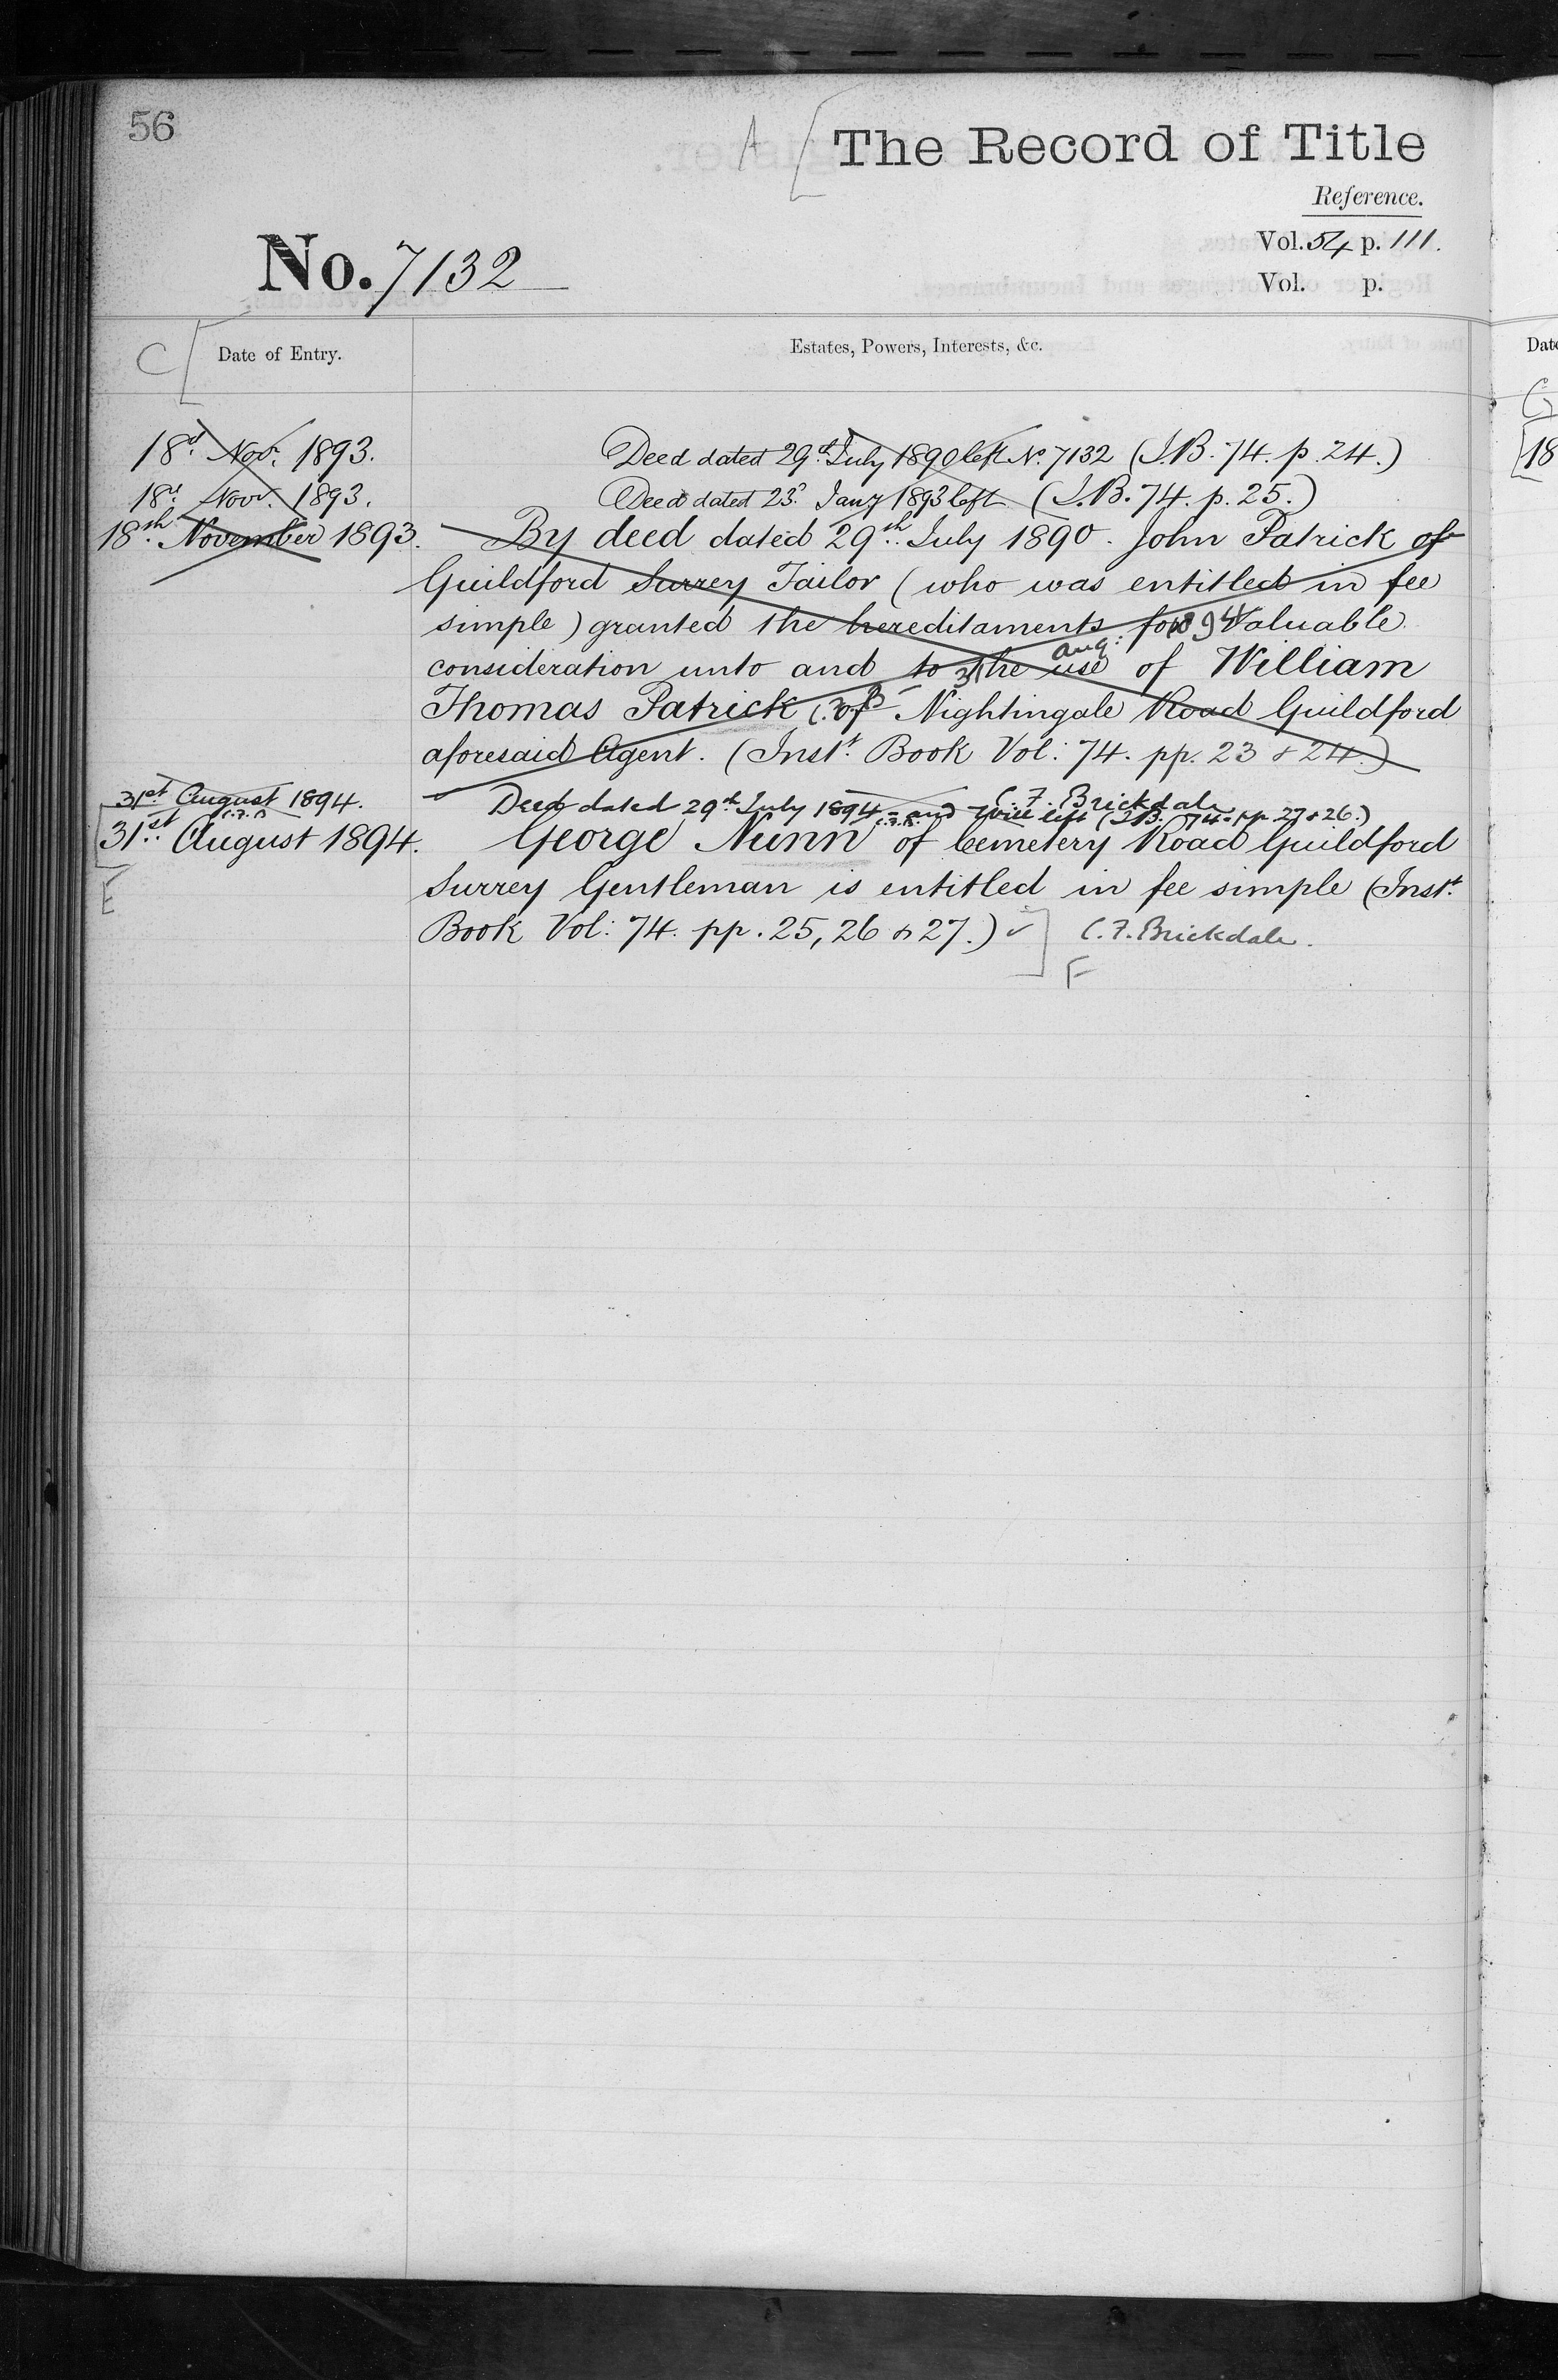 56
A [ The Record of Title
Reference.
Vol. 54 p. 111.
No. 7132
Vol. p.
C [ Date of Entry.
Estates, Powers, Interests, &c.
Date
G
18th Nov. 1893. Deed dated 29th July 1890 left No. 7132 (I.B. 74. p. 24.)
[18
18th Novr. 1893. Deed dated 23rd Jany 1893 left (I.B. 74. p. 25.)
18th November 1893. By deed dated 29th July 1890. John Patrick of
Guildford Surrey Tailor (who was entitled in fee
simple) granted the hereditaments for Valuable
consideration unto and to the use of William
Thomas Patrick of Nightingale Road Guildford
aforesaid Agent. (Inst. Book Vol: 74. pp. 23 & 24.)
31 Aug: 1894
C.F.B
C. F. Brickdale
31st August 1894. Deed dated 29th July 1894 and Will left (I.B. 74 pp. 27 & 26.)
C.F.B C.F.B.
[31st August 1894. George Nunn of Cemetery Road Guildford
E
Surrey Gentleman is entitled in fee simple (Inst.
Book Vol: 74. pp. 25, 26 & 27.) ] C. F. Brickdale.
F